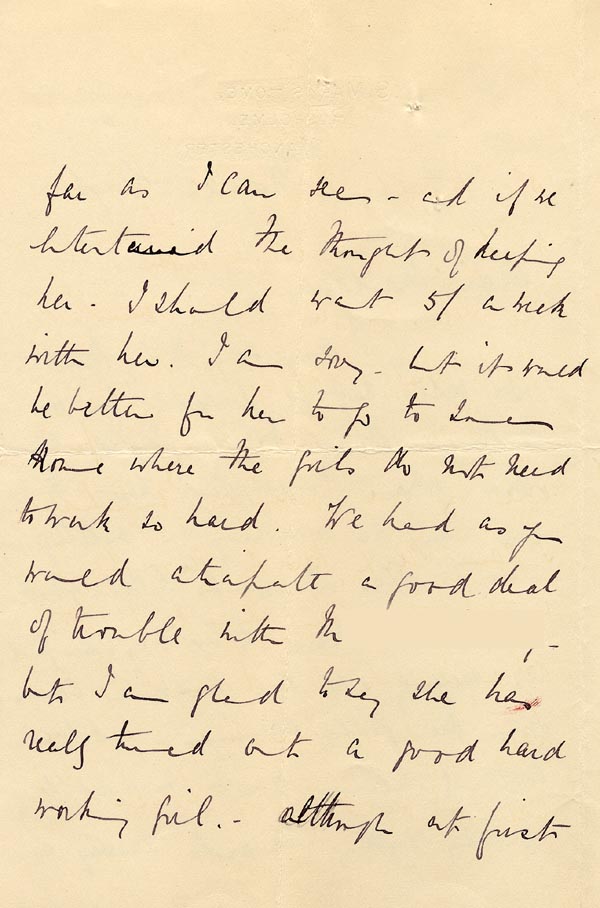 far as I can see - and if we
entertained the thought of keeping
her - I should want 5/ a week
with her. I am sorry - but it would
be better for her to go to some
Home where the girls do not need
to work so hard. We had as you
would anticipate a good deal
of trouble with M ,-
but I am glad to say she has
really turned out a good hard
working girl. - although at first